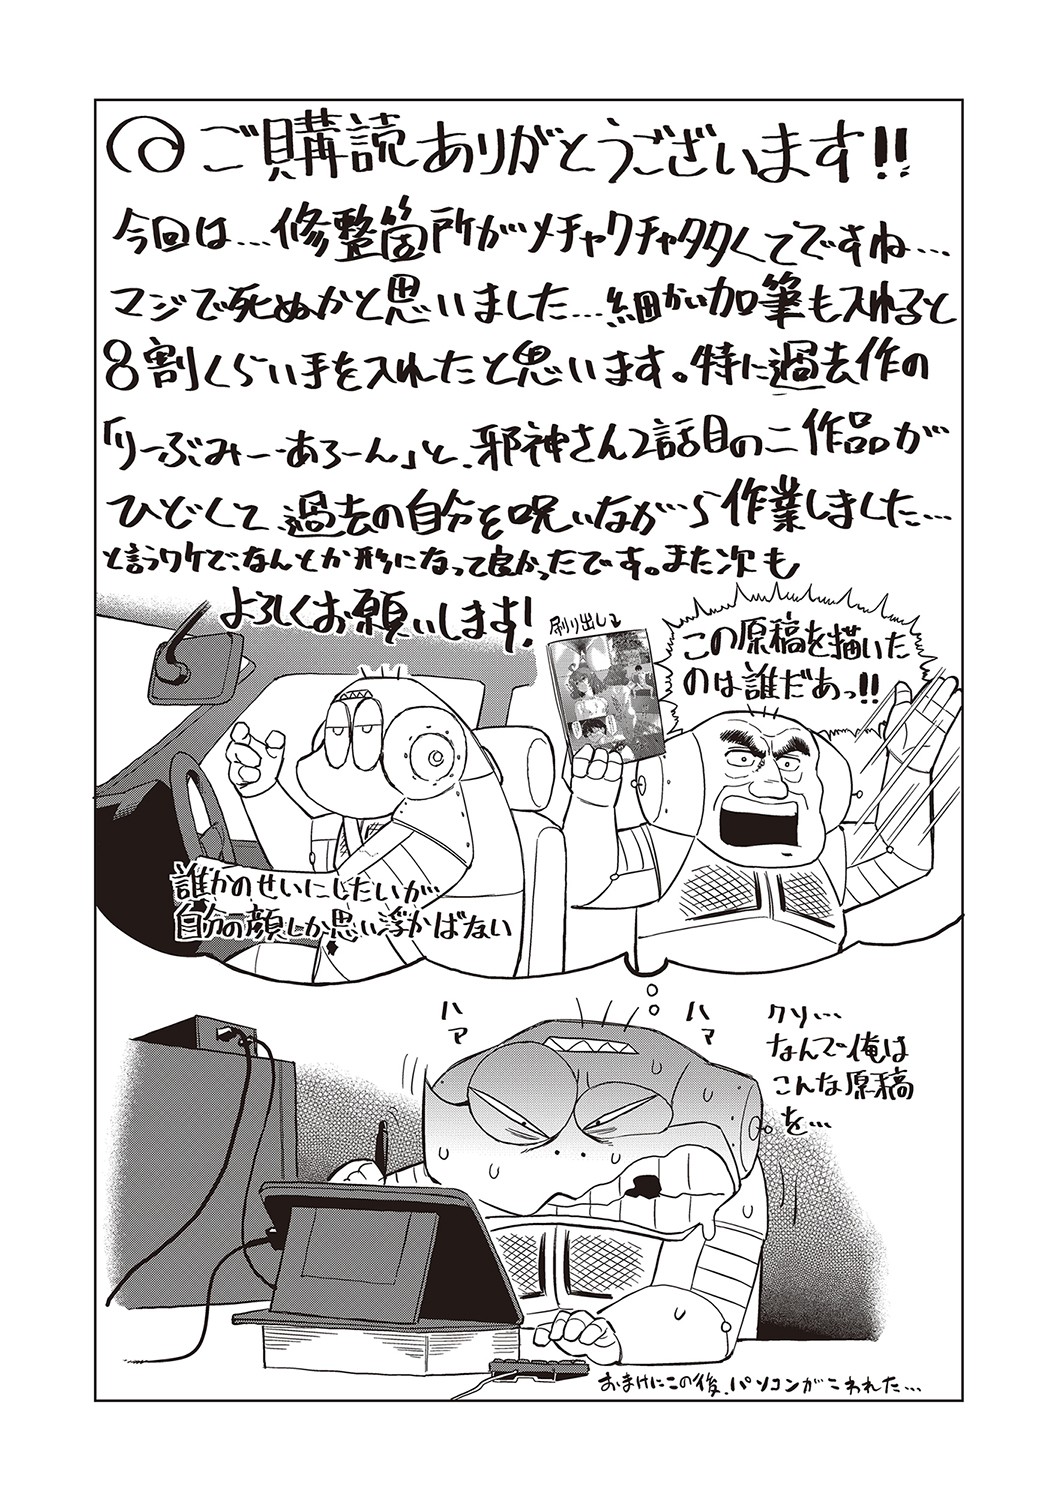 ご購読ありがとうございます!!
今回は…修整箇所がメチャクチャ多くてですね…
マジで死ぬかと思いました…細かい加筆も入れると
8割くらい手を入れたと思います。特に過去作の
「りーぶみー・あろーん」と、邪神さん2話目の二作品が
ひどくて過去の自分を呪いながら作業しました…
と言うワケで、なんとか形になって良かったです。また次も
よろしくお願いします!
刷り出し
この原稿を描いた
のは誰だあっ!!
誰かのせいにしたいが
自分の顔しか思い浮かばない
ハァ
ハァ
クソ…
なんで俺は
こんな原稿
を…
おまけにこの後、パソコンがこわれた…